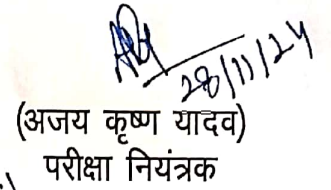 28/11/24
(अजय कृष्ण यादव)
परीक्षा नियंत्रक